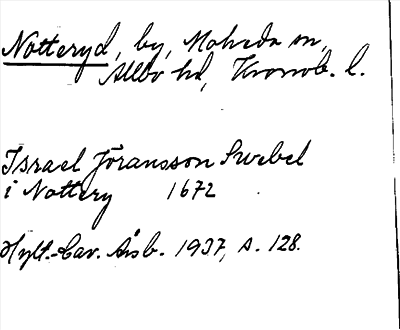 Notteryd, by, Moheda sn,
Allbo hd, Kronob. l.
Israel Jöransson Swebel
i Nottery 1672
Hylt.-Cav. Årsb. 1937, s. 128.